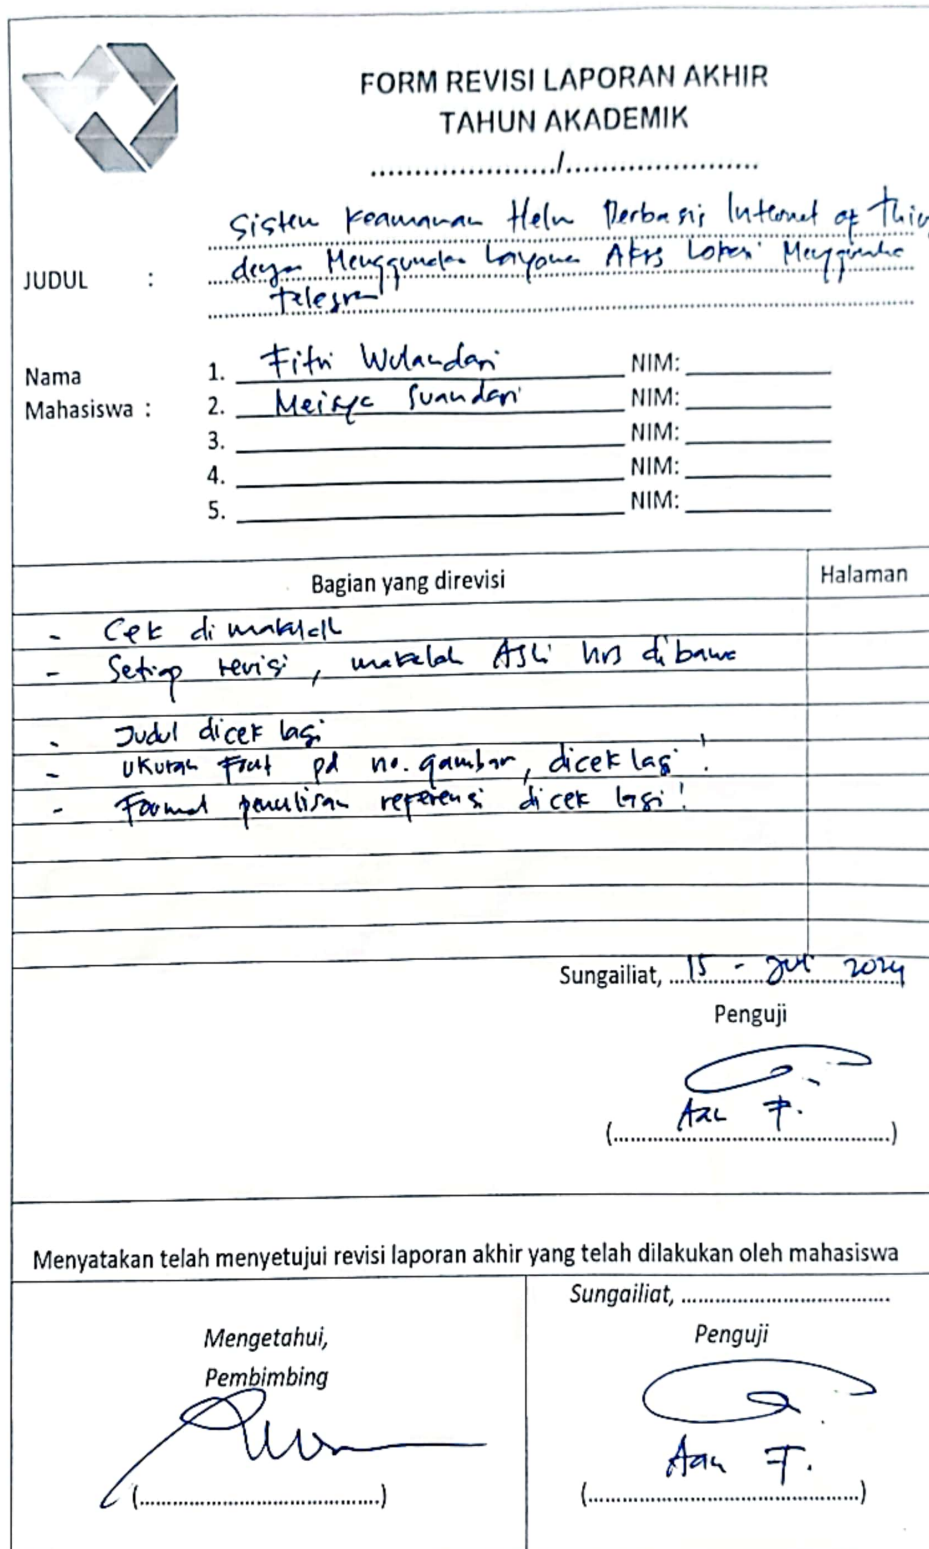 FORM REVISI LAPORAN AKHIR
TAHUN AKADEMIK
...................../......................
JUDUL :
Sistem Keamanan Helm Berbasis Internet of Thing
dengan Menggunakan Layanan Akses Lokasi Menggunakan
Telegram
Nama
Mahasiswa :
1. Fitri Wulandari NIM:
2. Meisya Suandari NIM:
3. NIM:
4. NIM:
5. NIM:
Bagian yang direvisi Halaman
- Cek di makalah
- Setiap revisi, makalah Asli hrs dibawa
- Judul dicek lagi
- Ukuran Font pd no. gambar, dicek lagi!
- Format penulisan referensi dicek lagi!
Sungailiat, 15 - Jul 2024
Penguji
(Aan F.)
Menyatakan telah menyetujui revisi laporan akhir yang telah dilakukan oleh mahasiswa
Mengetahui,
Pembimbing
(......................................)
Sungailiat, ......................................
Penguji
(Aan F.)